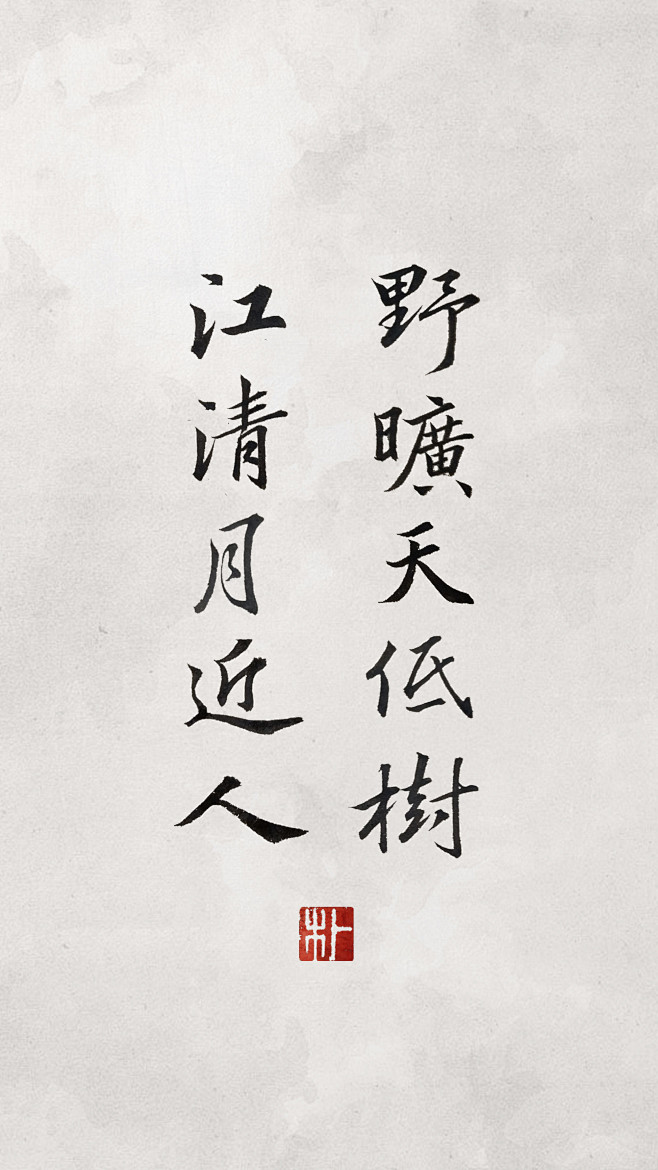 野曠天低樹
江清月近人
朴